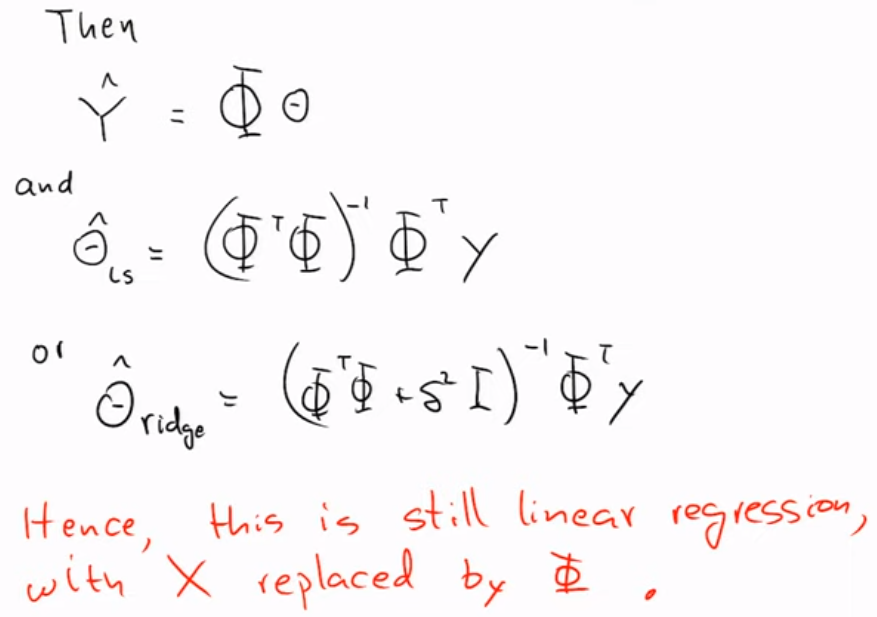 Then
Ŷ = Φ Θ
and
Θ̂_LS = (Φᵀ Φ)⁻¹ Φᵀ y
or
Θ̂_ridge = (Φᵀ Φ + δ² I)⁻¹ Φᵀ y
Hence, this is still linear regression,
with X replaced by Φ .